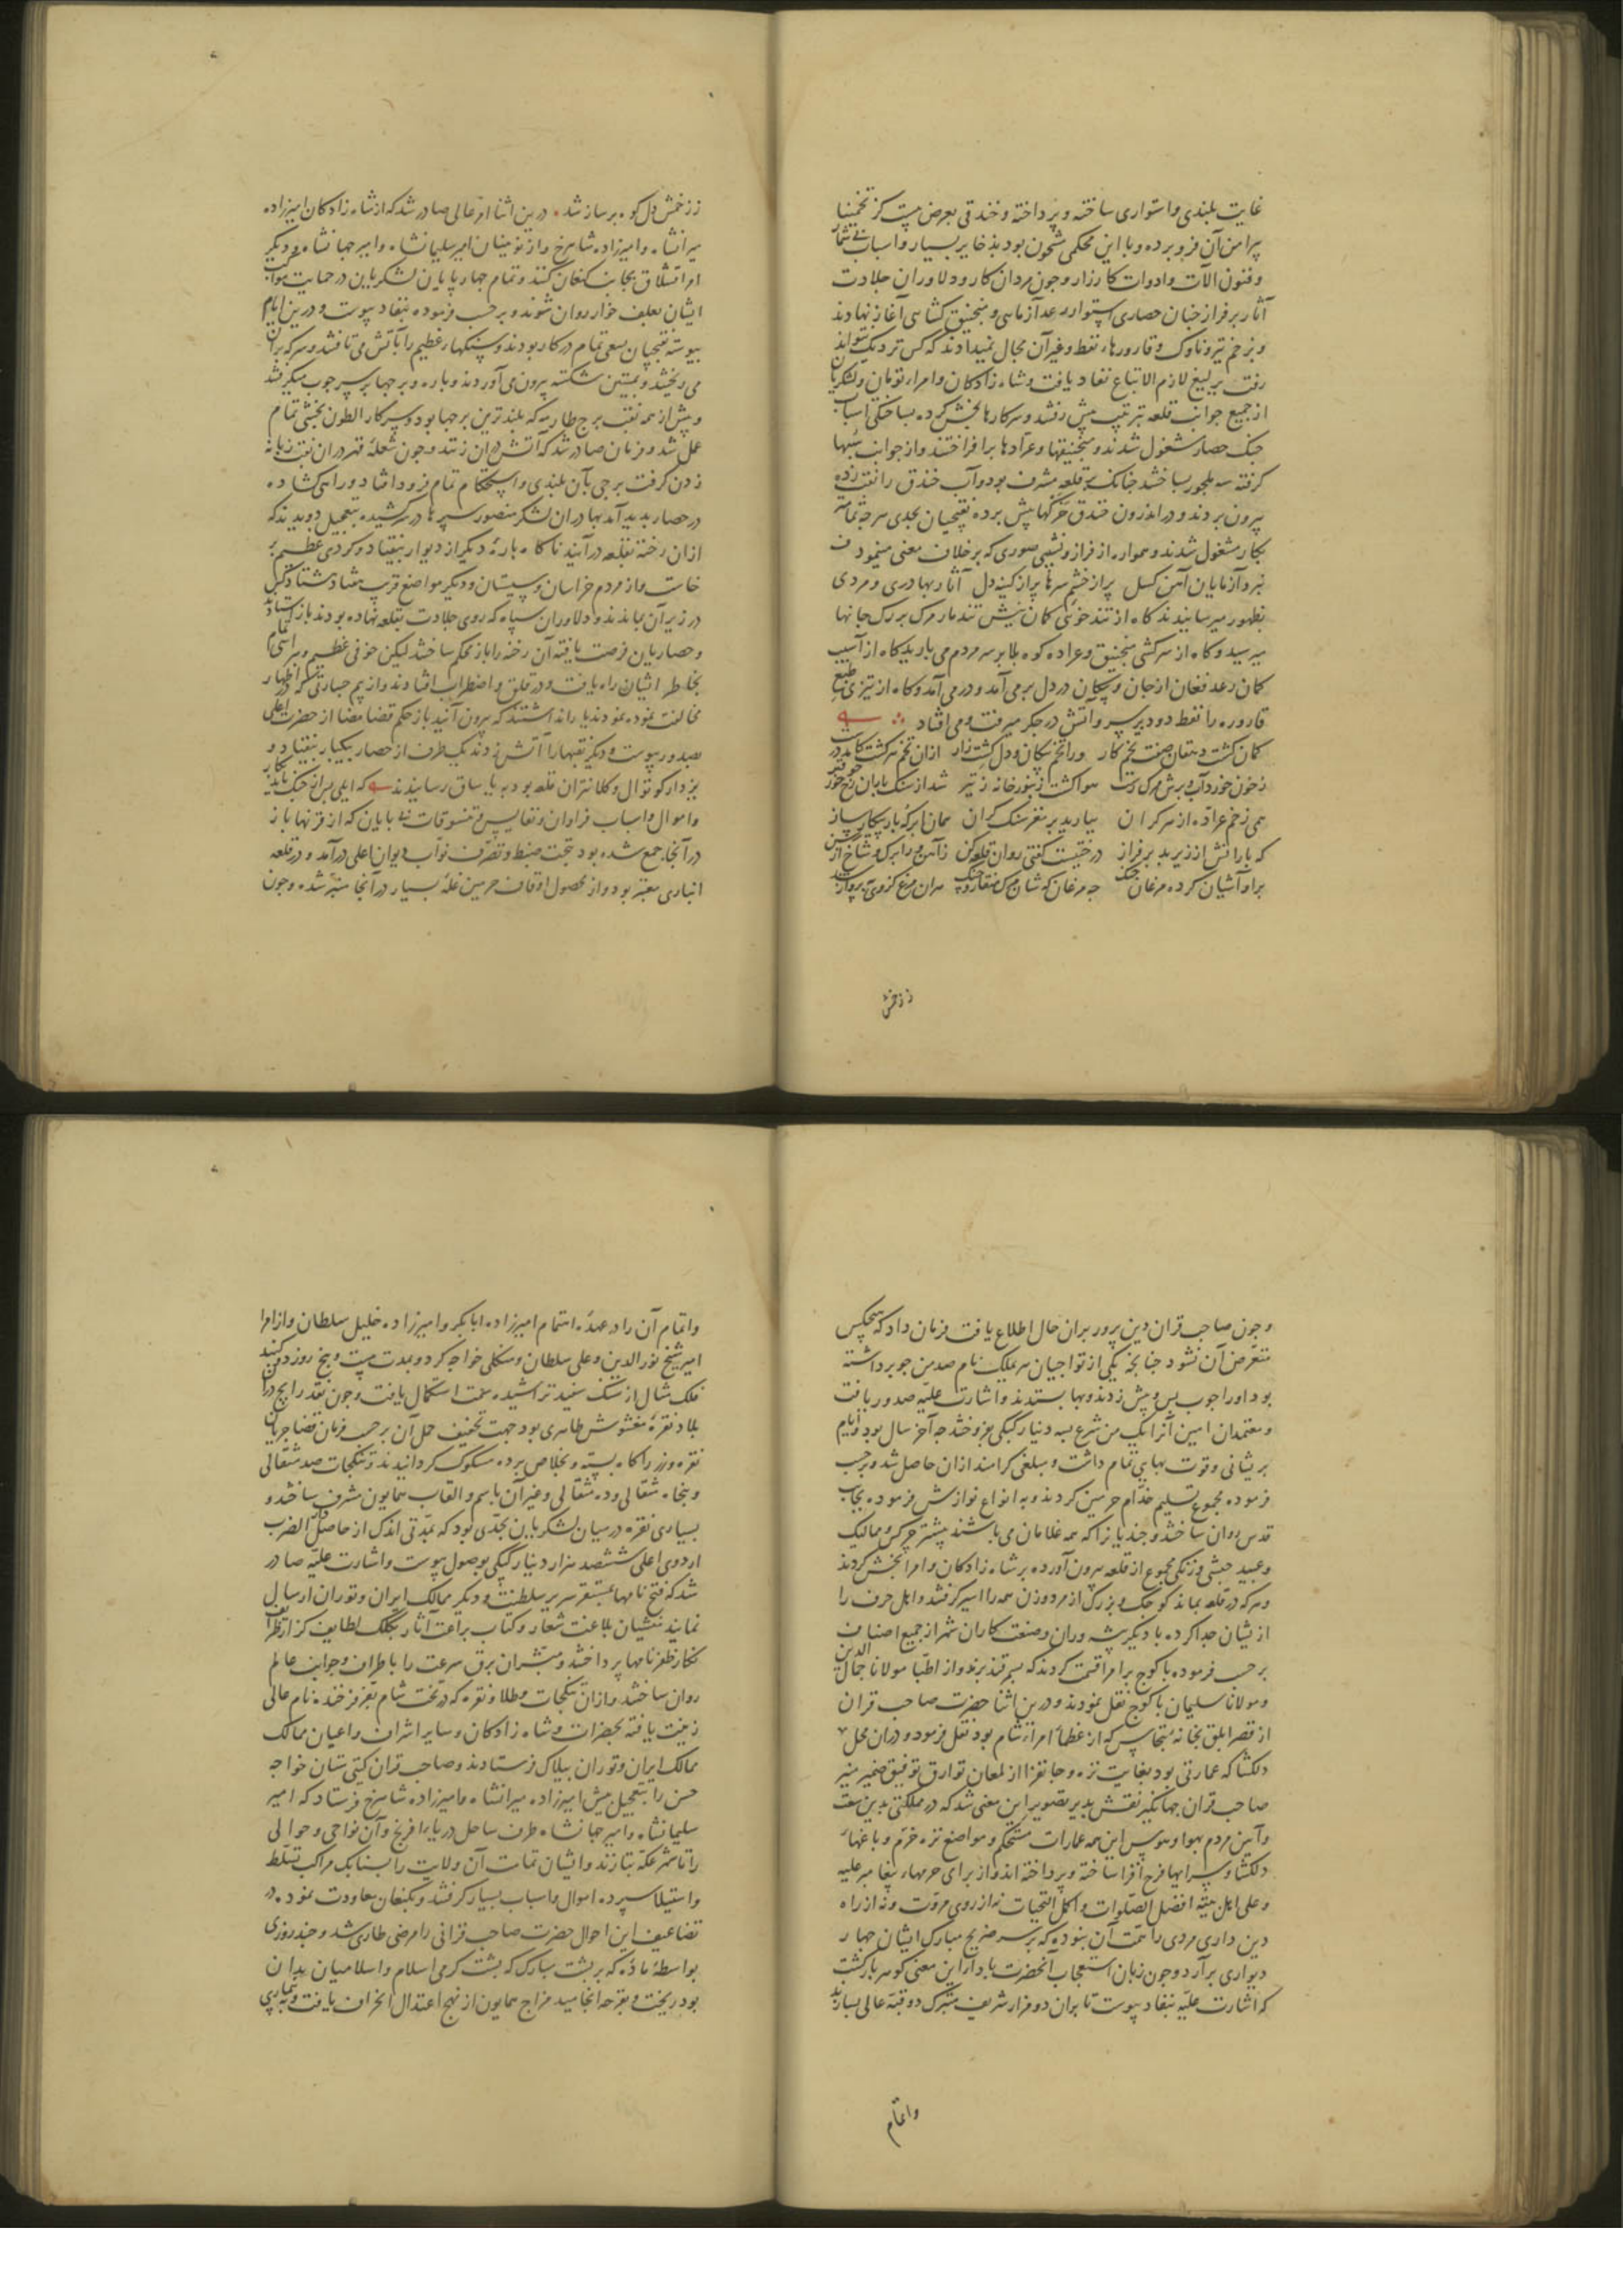 غایت بلندی و استواری ساخته و پرداخته و خندقی بعرض بیست کز تخمینا
پیرامن آن فرو برده و با این محکمی مشحون بود بذخایر بسیار و اسباب بی شمار
و فنون آلات و ادوات کارزار و جون مردان کار و دلاوران جلادت
آثار بر فراز جنان حصاری استوار رعد آزمایی و منجنیق کشایی آغاز نهادند
و بزخم تیر و ناوک و قارورهاء نفط و غیر آن مجال نمیدادند که کس نزدیک تواند
رفت یرلیغ لازم الاتباع نفاد یافت و شاه زادکان و امراء تومان و لشکریان
از جمیع جوانب قلعه بترتیب پیش رفتند و سرکارها بخش کرده بساختکی اسباب
جنک حصار مشغول شدند و منجنیقها و عرادها برافراختند و از جوانب شبها
کرفته سه ملجور ساختند جنانک بر قلعه مشرف بود و آب خندق را نقب زده
بیرون بردند و در اندرون خندق خرکها پیش برده نقبجیان بجدی هرجه تمامتر
بکار مشغول شدند و همواره از فراز و نشیبی صوری که بر خلاف معنی مینمود
نبرد آزمایان آهن کسل پر از خشم سرها پر از کینه دل آثار بهادری و مردی
بظهور میرسانیدند کاه از تندخوئی کمان نیش تند مار مرک بر رک جانها
میرسید و کاه از سرکشی منجنیق و عراده کوه بلا بر سر مردم می بارید کاه از آسیب
کمان رعد فغان از جان و پیکان در دل بر می آمد و در می آمد و کاه از تیزی طبع
قاروره را نفط دود بر سر و آتش در جکر میرفت و می افتاد
کمان کشت دهقان صفت تخم کار ورا تخم پیکان و دل کشت زار ازان تخم سر کشت
ز خون خورد آب و برش مرک رست هوا کشت زنبور خانه ز تیر شد از سنک باران
همی زخم عراده از هر کران ببارید بر مغز سنک کران همان ابر کز باد پیکار ساز
که بارانش از زیر بد بر فراز درختیست کفتی روان قلعه کن ز آهن ورا برک و شاخ از رسن
بر او آشیان کرده مرغان جنک جه مرغان کوشان مرک منقار و جنک
ززخمش
ز زخمش دل کوه بر ساز شد درین اثنا امر عالی صادر شد که از شاه زادکان امیرزاده
میرانشاه و امیرزاده شاهرخ و از نویینان امیر سلیمانشاه و امیر جهانشاه و دیکر
امرا بقشلاق بجانب کنعان کنند و تمام جهارپایان لشکریان در حمایت مواکب
ایشان بعلف خوار روان شوند و بر حسب فرموده بنفاد پیوست و درین ایام
پیوسته نقبجیان بسعی تمام در کار بودند و سنکهاء عظیم را بآتش می تافتند و سرکه بران
می ریختند و بمیتین شکسته بیرون می آوردند و باره و برجها بر سر جوب میکرفتند
و پیش از همه نقب برج طارمه که بلندترین برجها بود و سرکار الطون بخشی تمام
عمل شد و فرمان صادر شد که آتش دران زنند و جون شعلهٔ قهر دران نقب زبانه
زدن کرفت برجی بآن بلندی و استحکام تمام فرود افتاد و راهی کشاده
در حصار بدید آمد بهادران لشکر منصور سپرها در سر کشیده بتعجیل دویدند که
ازان رخنه بقلعه درآیند ناکاه بارهٔ دیکر از دیوار بیفتاد و کردی عظیم بر
خاست و از مردم خراسان و سیستان و دیکر مواضع قرب هفتاد هشتاد کس
در زیر آن بماندند و دلاوران سپاه که روی جلادت بقلعه نهاده بودند باز ایستادند
و حصاریان فرصت یافته آن رخنه را باز محکم ساختند لیکن خوفی عظیم و هراسی تمام
بخاطر ایشان راه یافت و در قلق و اضطراب افتادند و از بیم جسارتی که در اظهار
مخالفت نموده بودند یارا نداشتند که بیرون آیند باز حکم قضا مضا از حضرت اعلی
بصدور پیوست و دیکر نقبها را آتش زدند یک طرف از حصار بیکبار بیفتاد و
یزدار کوتوال و کلانتران قلعه بود به یاساق رسانیدند
و اموال و اسباب فراوان و نفایس و تنسوقات بی پایان که از قرنها باز
در آنجا جمع شده بود بتحت ضبط و تصرف نواب دیوان اعلی درآمد و در قلعه
انباری معتبر بود و از محصول اوقاف حرمین غلهٔ بسیار در آنجا منبر شده و جون
و جون صاحب قران دین پرور بران حال اطلاع یافت فرمان داد که هیجکس
متعرض آن نشود جنانجه یکی از تواجیان هریملک نام صد من جو برداشته
بود او را جوب پس و پیش زدند و بها بستدند و اشارت علیه صدور یافت
و معتمدان امین آنرا یک من شرع بسه دینار کپکی بفروختند جه آخر سال بود و ایام
پریشانی و قوت بهایی تمام داشت و مبلغی کرامند ازان حاصل شد و بر حسب
فرموده مجموع تسلیم خدام حرمین کردند و به انواع نوازش فرموده بجانب
قدس روان ساختند و جندیان را که همه غلامان می باشند پیشتر جرکس و ممالیک
و عبید حبشی و زنکی مجموع از قلعه بیرون آورده بر شاه زادکان و امرا بخش کردند
و هرکه در قلعه بماند کوجک و بزرک از مرد و زن همه را اسیر کرفتند و اهل حرف را
از ایشان جدا کرده با دیکر پیشه وران و صنعت کاران شهر از جمیع اصناف
بر حسب فرموده باکوج بر امرا قسمت کردند که بسمرقند برند و از اطبا مولانا جمال الدین
و مولانا سلیمان باکوج نقل نمودند و درین اثنا حضرت صاحب قران
از قصر ابلق بخانهٔ بتخاس که از عظماء امراء شام بود نقل فرمود و دران محل
دلکشا که عمارتی بود بغایت نزه و جانفزا از لمعان بوارق توفیق ضمیر منیر
صاحب قران جهانکیر نقش پذیر تصویر این معنی شد که در مملکتی بدین سعت
و آیین مردم بهوا و هوس این همه عمارات مستحکم و مواضع نزه خرم و باغهاء
دلکشا و سرایهاء فرح افزا ساخته و پرداخته اند و از برای حرمهاء پیغامبر علیه
و علی اهل بیته افضل الصلوات و اکمل التحیات نه از روی مروت و نه از راه
دین داری مردی را همت آن نبوده که بر سر ضریح مبارک ایشان جهار
دیواری برآرد و جون زبان استعجاب آنحضرت بادراز این معنی کوهر بار کشت
که اشارت علیه بنفاد پیوست تا بران دو مزار شریف متبرک دو قبه عالی بسازند
واتمام
و اتمام آن را در عهدهٔ اهتمام امیرزاده ابابکر و امیرزاده خلیل سلطان و از امرا
امیر شیخ نور الدین و علی سلطان و منکلی خواجه کرد و بمدت بیست و پنج روز دو کنبد
فلک مثال از سنک سفید تراشیده سمت استکمال یافت و جون نقد رایج دران
بلاد نقرهٔ مغشوش ظاهری بود جهت تخفیف حمل آن بر حسب فرمان قضا جریان
نقره و زر را کاه بسته و بخلاص برده مسکوک کردانیدند و تنکجات صد مثقالی
و پنجاه مثقالی و ده مثقالی و غیر آن باسم و القاب همایون مشرف ساختند و
بسیاری نقره در میان لشکریان بحدی بود که بمدتی اندک از حاصل دار الضرب
اردوی اعلی ششصد هزار دینار کپکی بوصول پیوست و اشارت علیه صادر
شد که فتح نامها بمستقر سریر سلطنت و دیکر ممالک ایران و توران ارسال
نمایند منشیان بلاغت شعار و کتاب براعت آثار بکلک لطایف کزار ظرایف
نکار ظفرنامها پرداختند و مبشران برق سرعت را باطراف و جوانب عالم
روان ساختند و ازان تنکجات مطلا و نقره که در تخت شام بفر فرخنده نام عالی
زینت یافته بحضرات و شاه زادکان و سایر اشراف و اعیان ممالک
ممالک ایران و توران بیلاک فرستادند و صاحب قران کیتی ستان خواجه
حسن را بتعجیل پیش امیرزاده میرانشاه و امیرزاده شاهرخ فرستاد که امیر
سلیمانشاه و امیر جهانشاه طرف ساحل دریاء افرنج و آن نواحی و حوالی
را تا شهر عکه بتازند و ایشان تمامت آن ولایت را بسنابک مراکب تسلط
و استیلا سپرده اموال و اسباب بسیار کرفتند و بکنعان معاودت نمود در
تضاعیف این احوال حضرت صاحب قرانی را مرضی طاری شد و جند روزی
بواسطهٔ مادهٔ که بر پشت مبارک که پشت کرمی اسلام و اسلامیان بدان
بود ریخت و بقرحه انجامید مزاج همایون از نهج اعتدال انحراف یافت